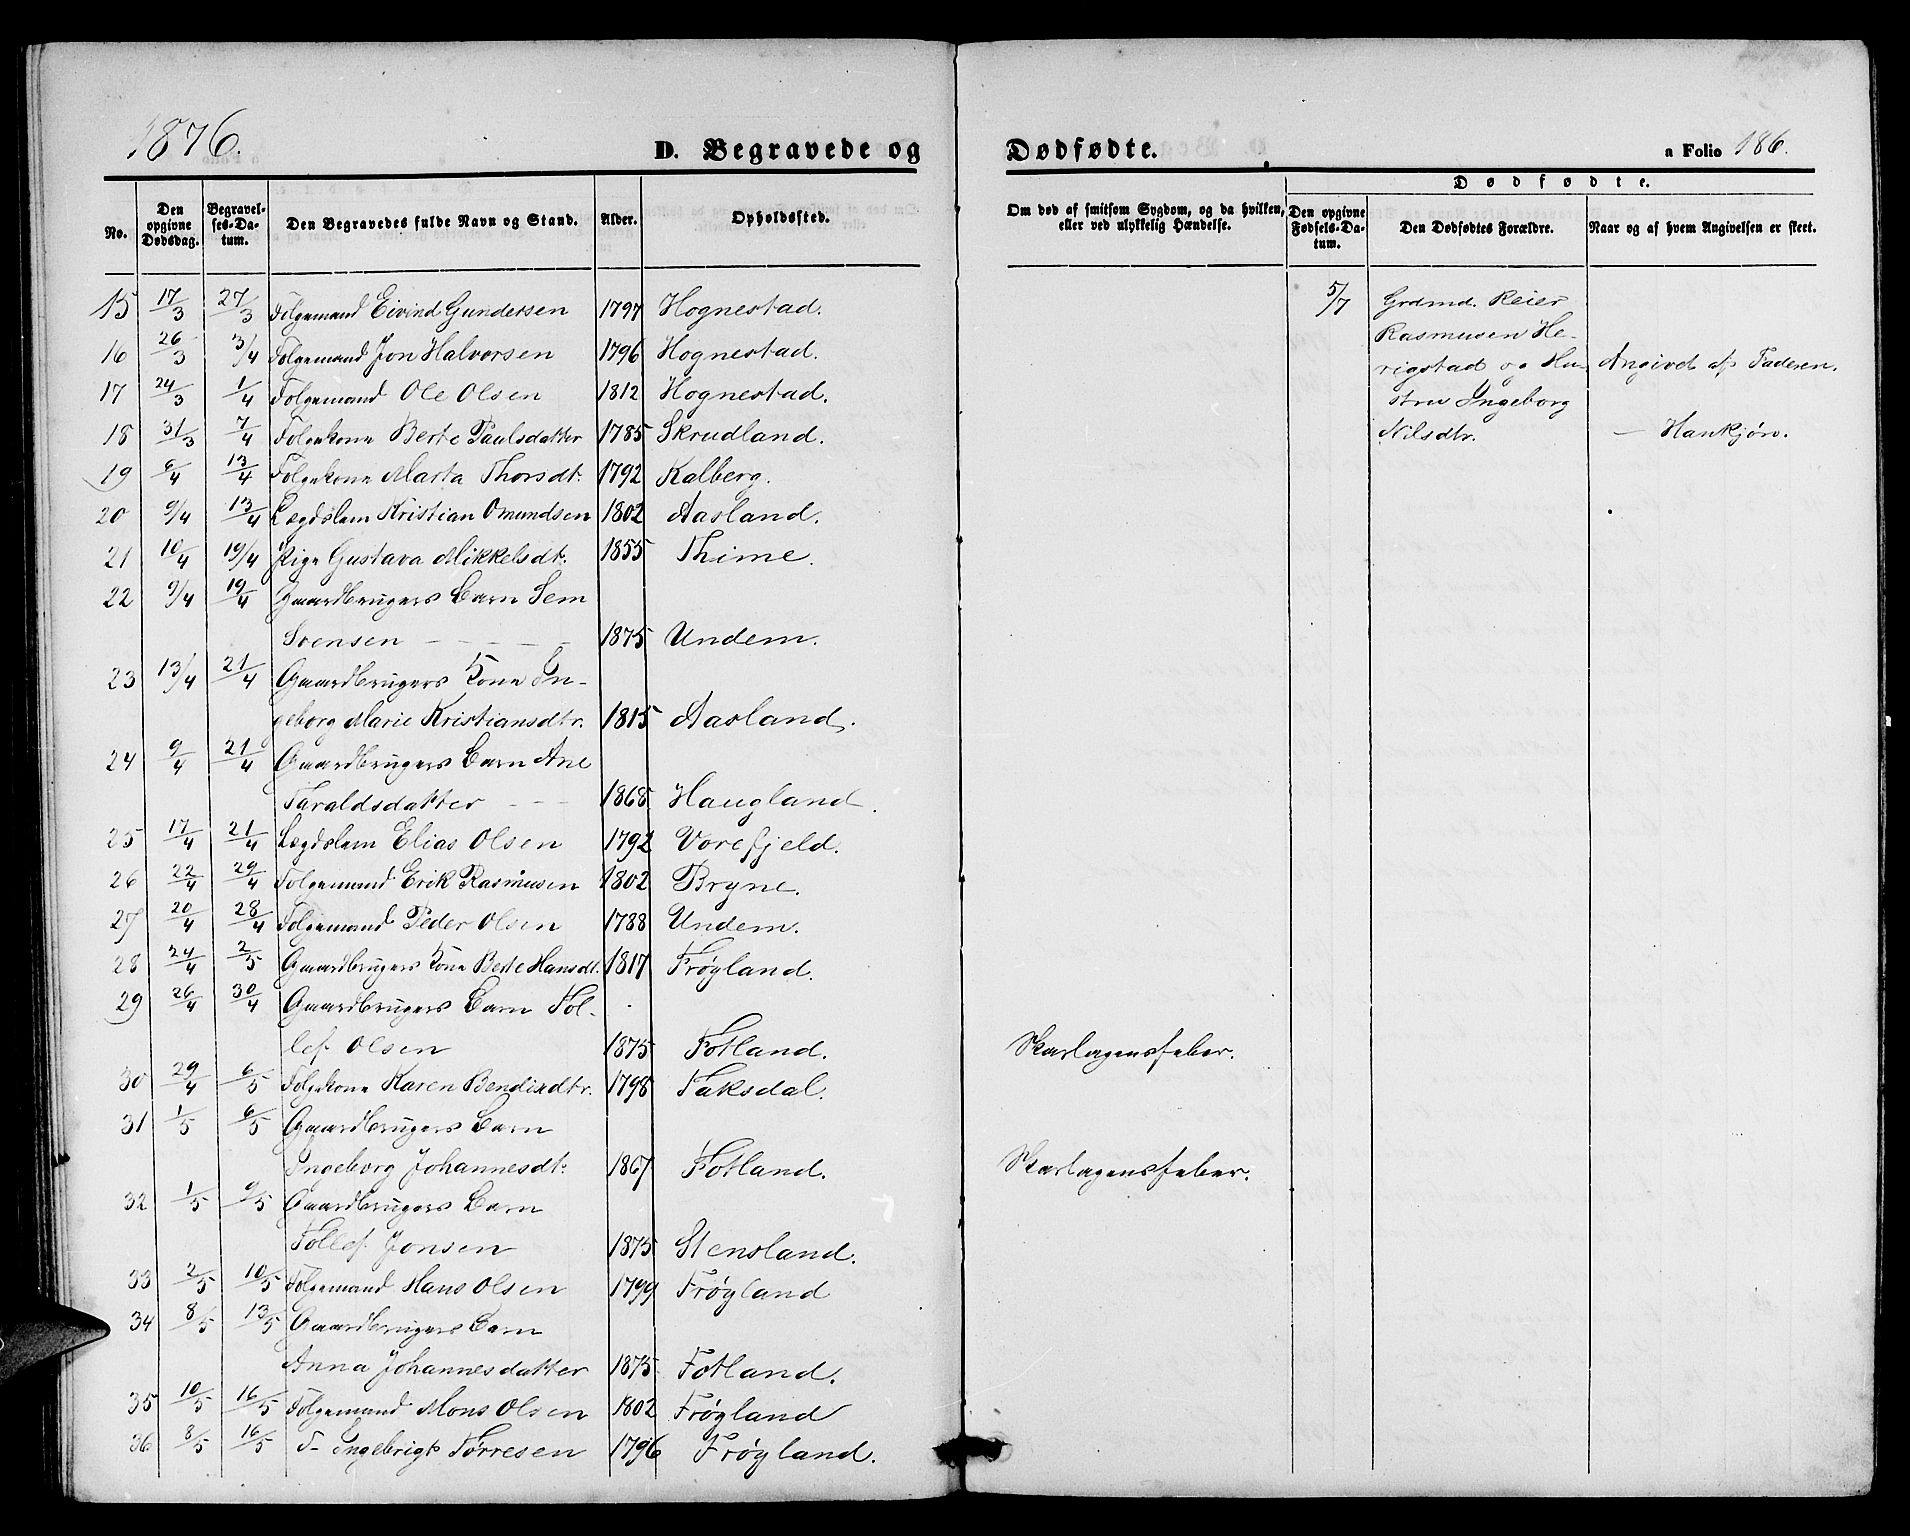 1876.
D. Begravede og
No.
Den opgivne Dødsdag.
Begravelses-Datum.
Den Begravedes fulde Navn og Stand.
Alder.
Opholdssted.
15 17/3 27/3 Folgemand Eivind Gundersen 1797 Hognestad.
16 26/3 3/4 Folgemand Jon Halvorsen 1796 Hognestad.
17 24/3 1/4 Folgemand Ole Olsen 1812 Hognestad.
18 31/3 7/4 Folgekone Berte Paulsdatter 1785 Skrudland.
19 6/4 13/4 Folgekone Marta Thorsdt. 1792 Kalberg.
20 9/4 13/4 Lægdslem Kristian Omundsen 1802 Aasland.
21 10/4 19/4 Pige Gustava Mikkelsdt. 1855 Thime.
22 9/4 19/4 Gaardbrugers Barn Sem
Svensen - - - - 1875 Undem.
23 13/4 21/4 Gaardbrugers Kone In-
geborg Marie Kristiansdtr. 1815 Aasland.
24 9/4 21/4 Gaardbrugers Barn Ane
Taraldsdatter - - 1868 Haugland.
25 17/4 21/4 Lægdslem Elias Olsen 1792 Vorefjeld.
26 22/4 29/4 Folgemand Erik Rasmusen 1802 Bryne.
27 20/4 28/4 Folgemand Peder Olsen 1788 Undem.
28 24/4 2/5 Gaardbrugers Kone Berte Hansdt. 1817 Frøyland.
29 26/4 30/4 Gaardbrugers Barn Tol-
lef Olsen 1875 Fotland.
30 29/4 6/5 Folgekone Karen Bendixdtr. 1798 Taksdal.
31 1/5 6/5 Gaardbrugers Barn
Ingeborg Johannesdt: 1867 Fotland.
32 1/5 9/5 Gaardbrugers Barn
Tollef Jonsen 1875 Stensland.
33 2/5 10/5 Folgemand Hans Olsen 1799 Frøyland
34 8/5 13/5 Gaardbrugers Barn
Anna Johannesdatter 1875 Fotland.
35 10/5 16/5 Folgemand Mons Olsen 1802 Frøyland
36 8/5 16/5 F- Ingebrigt Tørresen 1796 Frøyland.
Dødfødte.
a Folio 186.
Dødfødte.
Om død af smitsom Sygdom, og da hvilken,
eller ved ulykkelig Hændelse.
Den opgivne Fødsels-Datum.
Den Dødfødtes Forældre.
Naar og af hvem Angivelsen er skeet.
5/7 Grdmd. Reier
Rasmusen He-
rigstad og Hu- Angivet af Faderen.
stru Ingeborg
Nilsdtr. — Hankjøn.
Skarlagensfeber.
Skarlagensfeber.